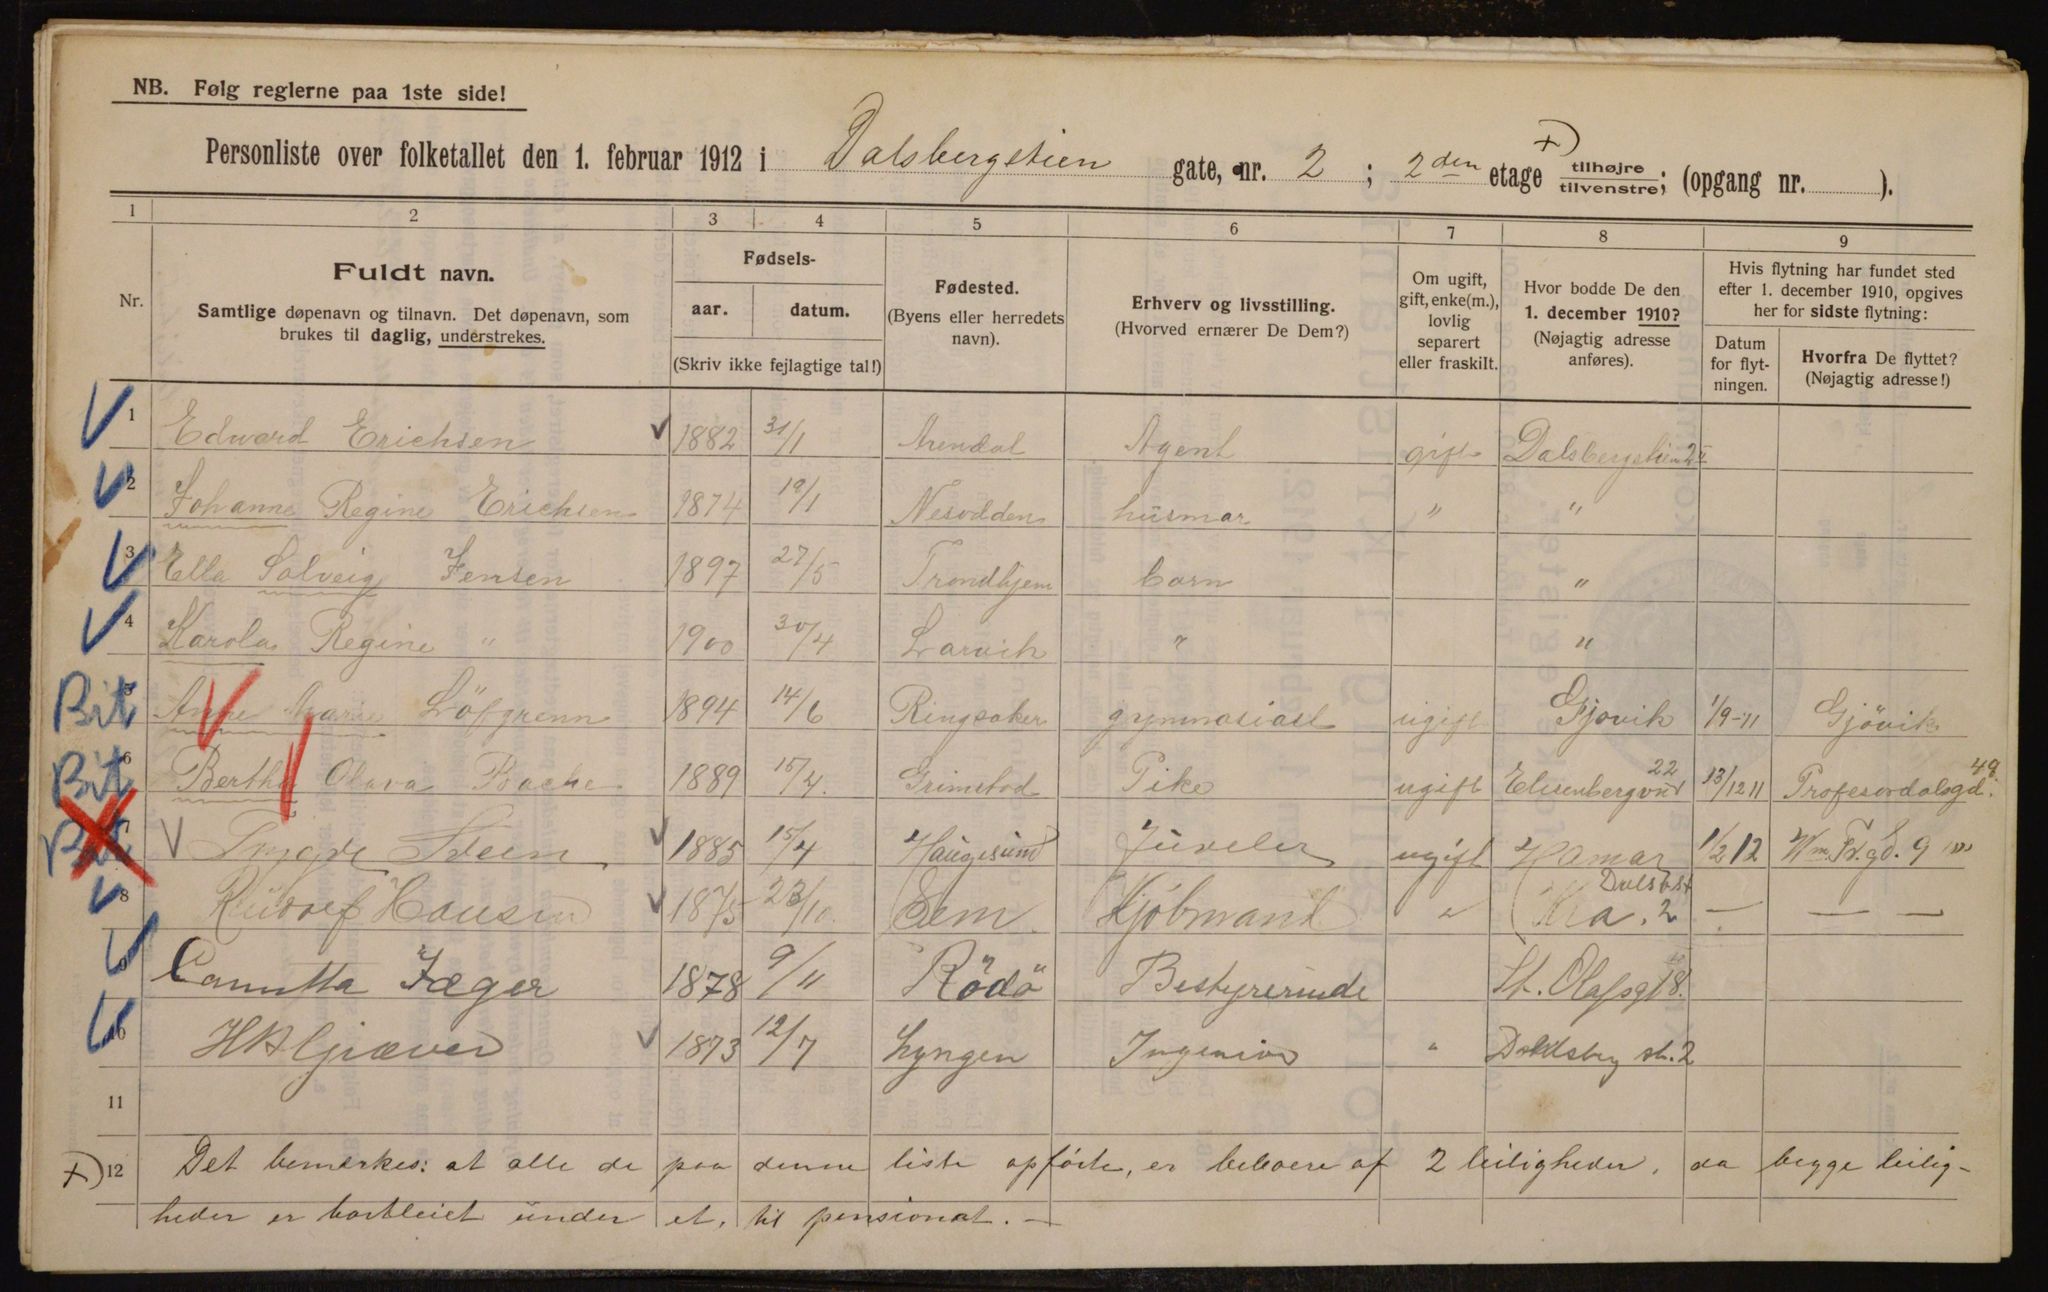 NB. Følg reglerne paa 1ste side!
Personliste over folketallet den 1. februar 1912 i Dalsbergstien gate, nr. 2 ; 2den etage tilhøjre/tilvenstre; (opgang nr. ).
+)
1 2 3 4 5 6 7 8 9
Nr.
Fuldt navn.
Samtlige døpenavn og tilnavn. Det døpenavn, som
brukes til daglig, understrekes.
Fødsels-
aar. datum.
(Skriv ikke fejlagtige tal!)
Fødested.
(Byens eller herredets
navn).
Erhverv og livsstilling.
(Hvorved ernærer De Dem?)
Om ugift,
gift, enke(m.),
lovlig
separert
eller fraskilt.
Hvor bodde De den
1. december 1910?
(Nøjagtig adresse
anføres).
Hvis flytning har fundet sted
efter 1. december 1910, opgives
her for sidste flytning:
Datum
for flyt-
ningen.
Hvorfra De flyttet?
(Nøjagtig adresse!)
1 Edward Erichsen 1882 31/1 Arendal Agent gift Dalsbergstien 2 II
2 Johanne Regine Erichsen 1874 19/1 Nesodden husmor " "
3 Ella Solveig Jensen 1897 27/5 Trondhjem barn "
4 Karola Regine " 1900 30/4 Larvik " "
Bit 5 Anne Marie Löfgrenn 1894 14/6 Ringsaker gymnasiast ugift Gjøvik 1/9-11 Gjövik
Bit 6 Bertha Olava Bache 1889 15/4. Grimstad Pike ugift Elisenbergvei 22 13/12 11 Profesordalsgd. 49.
Bit 7 Yngve Steen 1885 15/4 Haugesund Juveler ugift Hamar 1/2 12 Wm. Fr. gd. 9
8 Rudolf Hansen 1875 23/10. Sem Kjöbmand " Kra. Dalsb.st 2 — — —
9 Camitta Jæger 1878 9/11 Rödö Bestyrerinde St. Olafsgt 8.
10 H A Gjæver 1873 12/7 Lyngen Ingeniør " Dalsberg st. 2
11
+) 12 Det bemerkes: at alle de paa denne liste opførte, er beboere af 2 leiligheder, da begge leilig-
heder er bortleiet under et, til pensionat. —